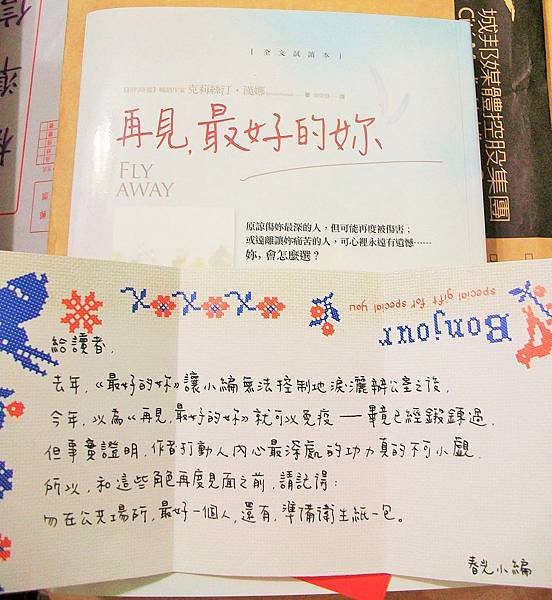 全文試讀本
克莉絲汀・漢娜
再見，最好的妳
FLY
AWAY
原諒傷妳最深的人，但可能再度被傷害；
或遠離讓妳痛苦的人，可心裡永遠有遺憾……
妳，會怎麼選？
城邦媒體控股集團
信
準
Bonjour
special gift for special you
給讀者，
去年，《最好的妳》讓小編無法控制地淚灑辦公室之後，
今年，以為《再見，最好的妳》就可以免疫——畢竟已經鍛鍊過，
但事實證明，作者打動人內心最深處的功力真的不可小覷，
所以，和這些角色再度見面之前，請記得：
勿在公共場所，最好一個人，還有，準備衛生紙一包。
春光小編